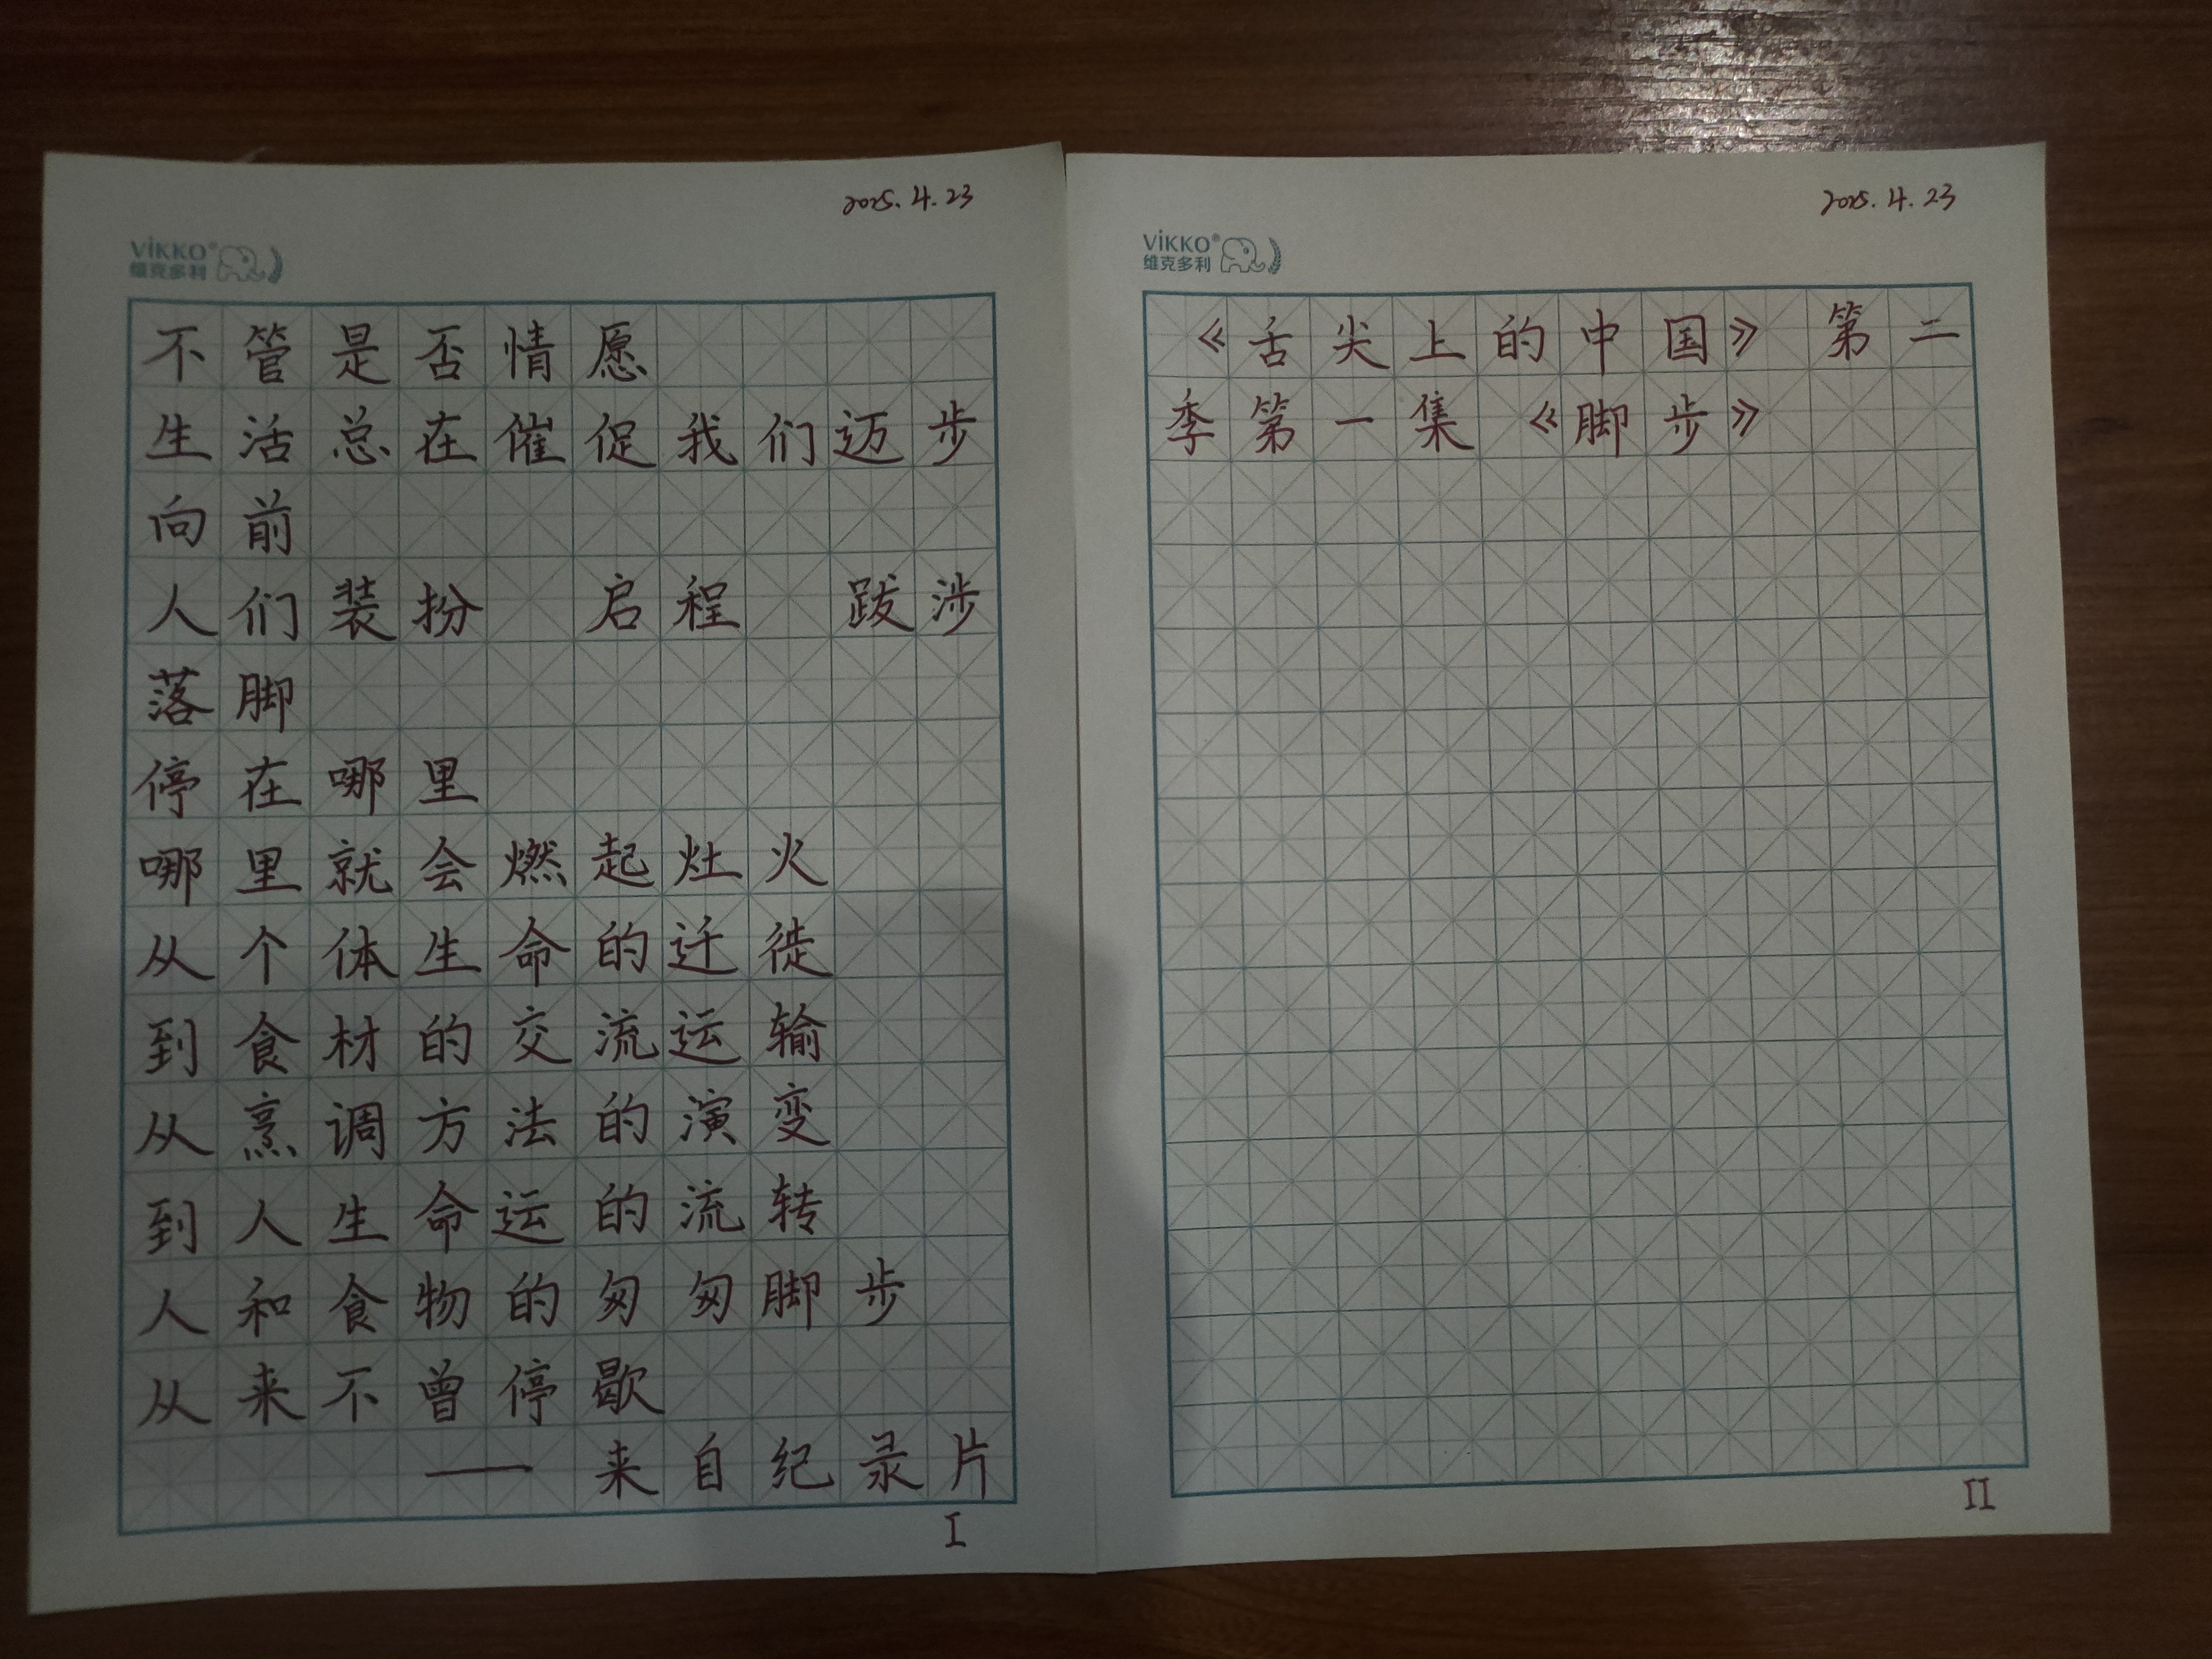 2025.4.23
VİKKO®
维克多利
不管是否情愿
生活总在催促我们迈步
向前
人们装扮 启程 跋涉
落脚
停在哪里
哪里就会燃起灶火
从个体生命的迁徙
到食材的交流运输
从烹调方法的演变
到人生命运的流转
人和食物的匆匆脚步
从来不曾停歇
——来自纪录片
I
2025.4.23
VİKKO®
维克多利
《舌尖上的中国》第二
季第一集《脚步》
II